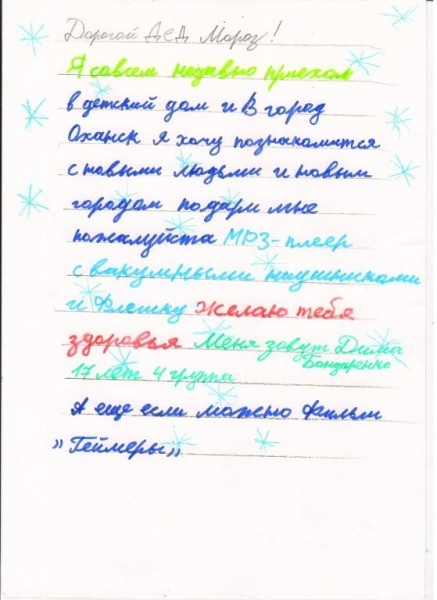 Дорогой Дед Мороз!
Я совсем недавно приехал
в детский дом и в город
Оханск я хочу познакомится
с новыми людьми и новым
городом подари мне
пожалуйста MP3-плеер
с вакумными наушниками
и флешку желаю тебя
здоровья Меня зовут Дима
Бондаренко
17 лет 4 група
А еще если можно фильм
„Геймеры„